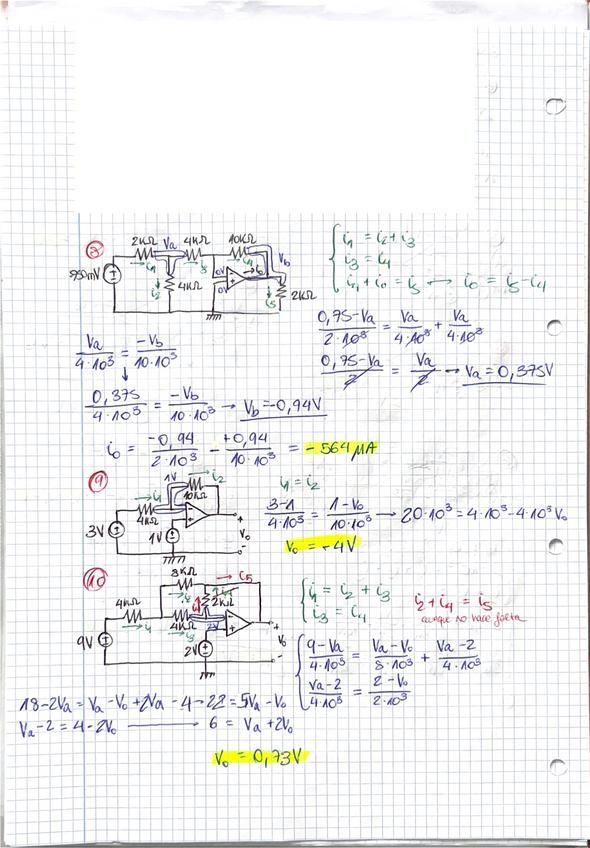 8
2KΩ Va 4KΩ 10KΩ Vb
i1 i3 i4 i0
750mV i2 4KΩ 0V 0V i5 2KΩ
i1 = i2 + i3
i3 = i4
i4 + i0 = i5 → i0 = i5 - i4
Va/4·10³ = -Vb/10·10³
0,75-Va/2·10³ = Va/4·10³ + Va/4·10³
0,75-Va/2 = Va/2 → Va = 0,375V
0,375/4·10³ = -Vb/10·10³ → Vb = -0,94V
i0 = -0,94/2·10³ - +0,94/10·10³ = -564μA
9
1V i2
i1 10KΩ
4KΩ
3V 1V V0
i1 = i2
3-1/4·10³ = 1-V0/10·10³ → 20·10³ = 4·10³-4·10³V0
V0 = -4V
10
8KΩ i5
4KΩ i2 2KΩ i4
i1 4KΩ 2V
i3
9V 2V V0
i1 = i2 + i3
i3 = i4
i2 + i4 = i5
aunque no hace falta
9-Va/4·10³ = Va-V0/8·10³ + Va-2/4·10³
Va-2/4·10³ = 2-V0/2·10³
18-2Va = Va-V0+2Va-4 → 22 = 5Va-V0
Va-2 = 4-2V0 → 6 = Va+2V0
V0 = 0,73V